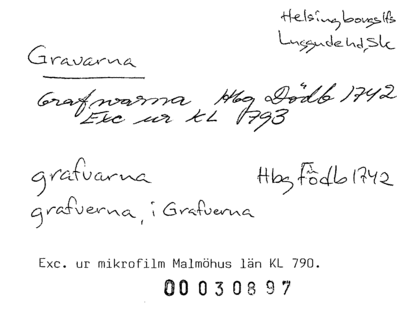 Helsingborgs lfs
Luggude hd, Sk
Gravarna
Grafwarna Hbg Dödb 1742
Exc ur KL 793
grafvarna Hbg födb 1742
grafverna, i Grafverna
Exc. ur mikrofilm Malmöhus län KL 790.
00030897